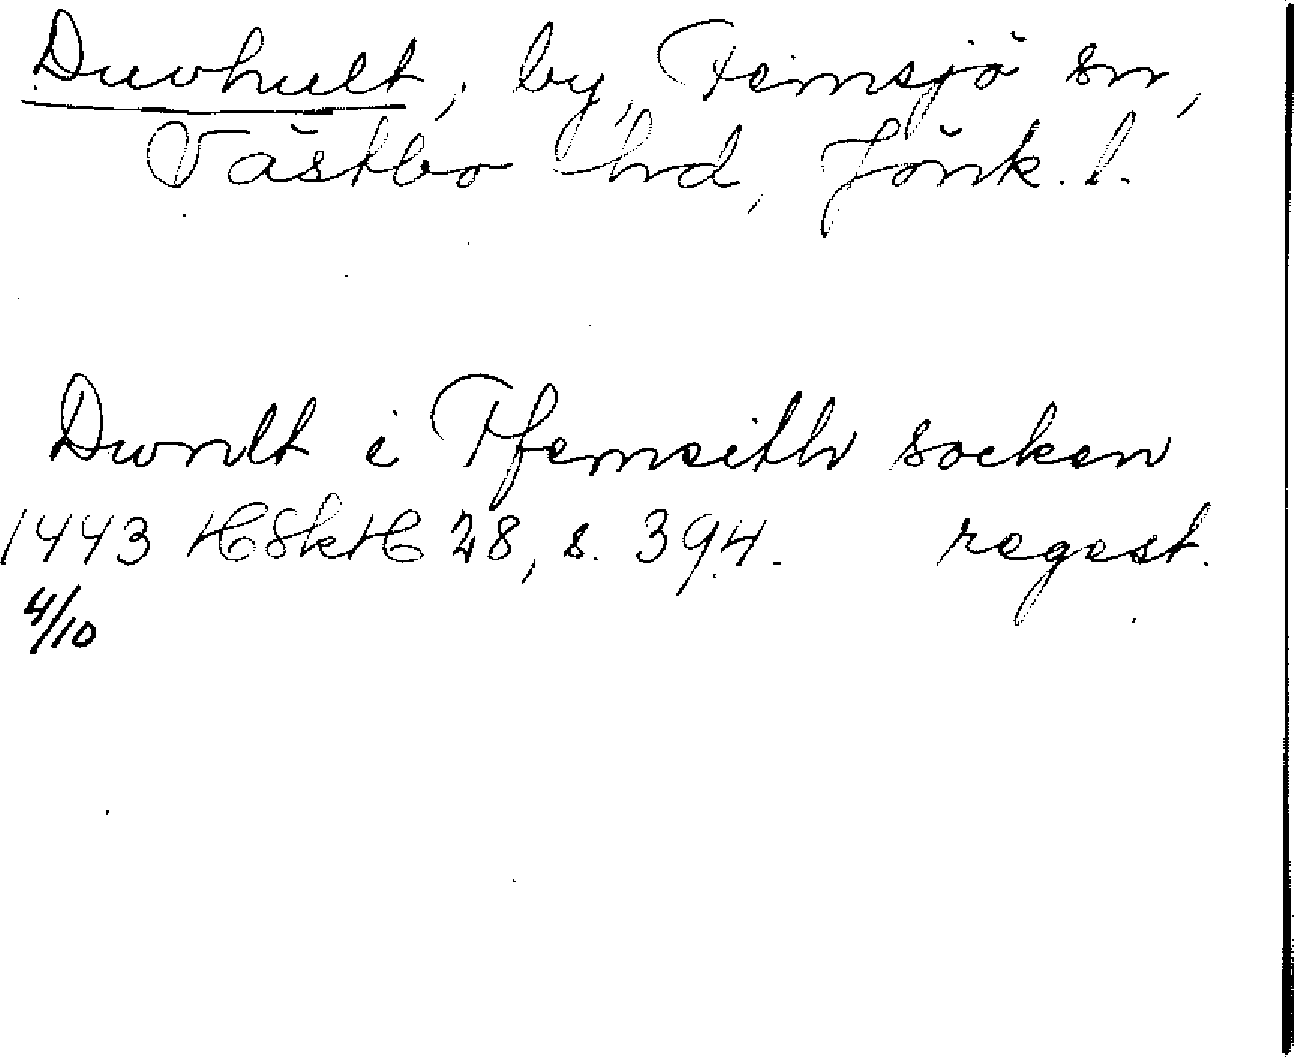 Duvhult, by, Femsjö sn,
Västbo hd, Jönk. l.
Dwnlt i Ffemsith socken
1443 HSkH 28, s. 394. regest.
4/10